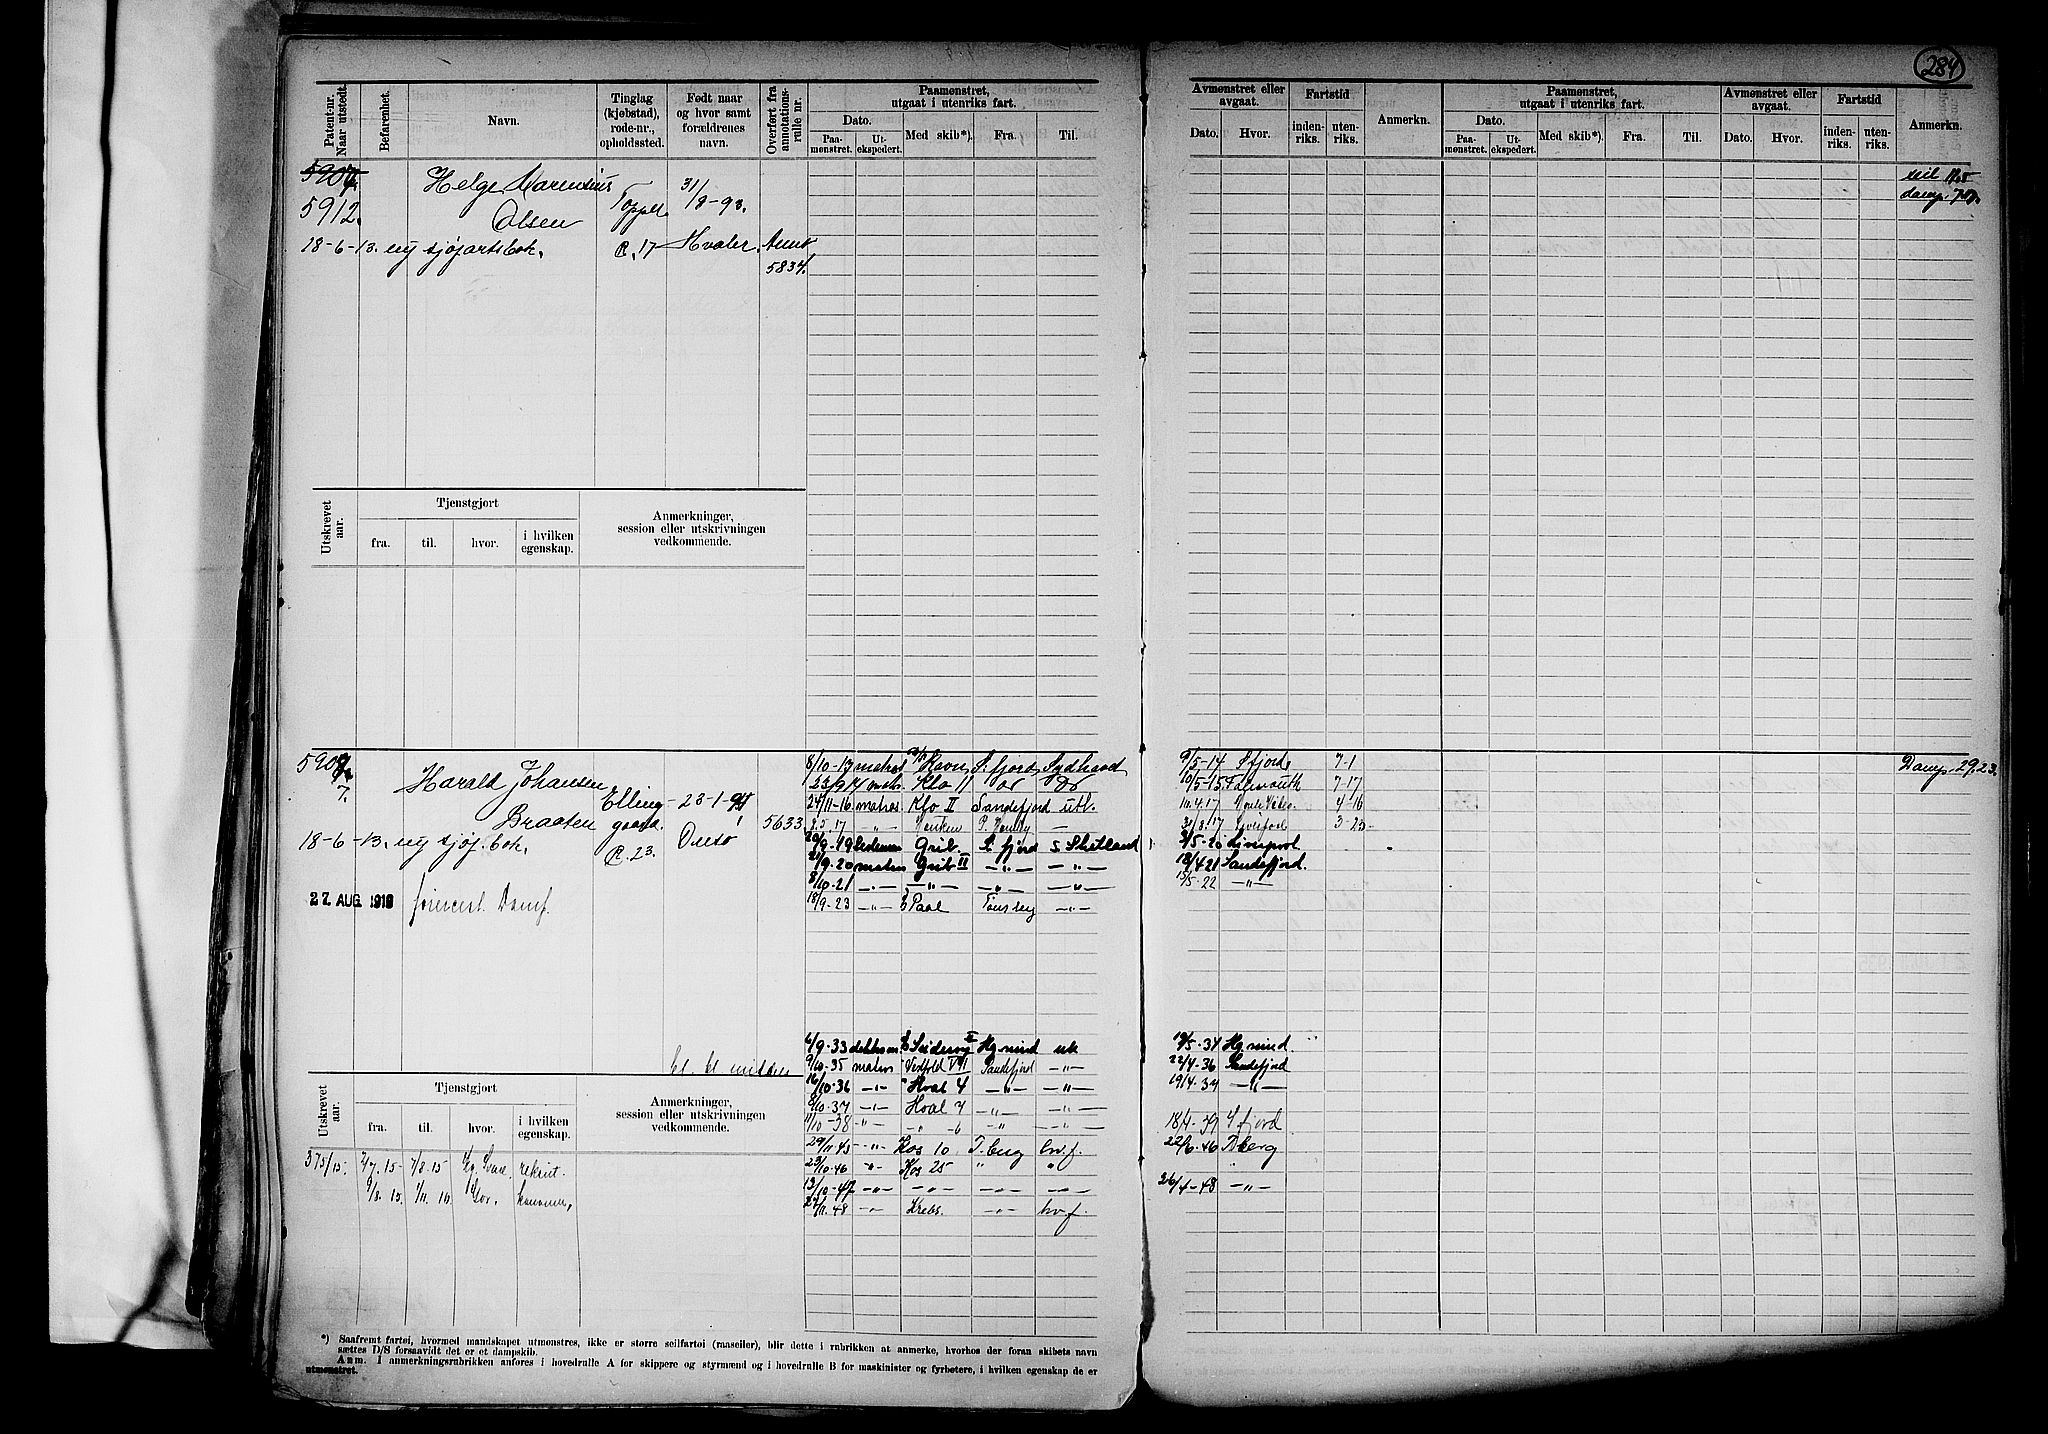 284
Patent-nr. Naar utstedt.
Befarenhet.
Navn.
Tinglag (kjøbstad), rode-nr., opholdssted.
Født naar og hvor samt forældrenes navn.
Overført fra annotations-rulle nr.
Paamønstret, utgaat i utenriks fart.
Dato.
Paa-mønstret.
Ut-ekspedert.
Med skib*).
Fra.
Til.
Avmønstret eller avgaat.
Dato.
Hvor.
Fartstid
inden-riks.
uten-riks.
Anmerkn.
Paamønstret, utgaat i utenriks fart.
Dato.
Paa-mønstret.
Ut-ekspedert.
Med skib*).
Fra.
Til.
Avmønstret eller avgaat.
Dato.
Hvor.
Fartstid
inden-riks.
uten-riks.
Anmerkn.
5912.
Helge Marensius
Olsen
31/8-93.
18-6-13. ny sjøfartsbok.
R. 17
Hvaler.
Annot
5834.
seil
damp.
Utskrevet aar.
Tjenstgjort
fra.
til.
hvor.
i hvilken egenskap.
Anmerkninger, session eller utskrivningen vedkommende.
7.
Harald Johansen
Braaten
Elling-
gaard
R. 23.
23-1-94
Onsø
5633
18-6-13. ny sjøf. bok.
27. AUG. 1919
Damp. 29,23.
8/10-13 matros Ravn S.fjord Sydhavet
9/5-14 Sfjord 7-1
23/9 14 Klo II do Do
10/5-15 Falmouth 7-17
24/11-16 matros Klo II Sandefjord utl.
10.4.17 4-16
2.5.17 -"-
31/8.17 3-23
20/9-19 Grib. S. fjord S. Shetland
3/5-20 Liverpool
21/9-20 matros Grib II -"- -"-
18/4-21 Sandefjord.
8/10-21 -"- -"- -"- -"-
15/5-22 -"-
18/9-23 -"- Paal Tønsberg -"-
6/9-33 Hgsund utl
19/5-34 Hgsund.
9/10-35 matros Vestfold VII Sandefjord -"-
22/4-36 Sandefjord
16/10-36 -"- Hval 4 -"- -"-
19/4-37 -"-
8/10-37 -"- Hval 7 -"- -"-
1/10-38 -"- -"- 6 -"- -"-
18/4-39 Sfjord
29/11 45 -"- Kos 10 T.berg hv.f.
22/6-46 Tberg
23/10-46 -"- Kos 25 " "
13/10-47 -"- -"- -"- -"-
26/4-48 -"-
22/11.48 -"- Krebs. -"- hv.f.
Utskrevet aar.
Tjenstgjort
fra.
til.
hvor.
i hvilken egenskap.
Anmerkninger, session eller utskrivningen vedkommende.
375/15. 2/7.15- 7/8.15 rekrut.
9/8.15. 1/11.16.
*) Saafremt fartøi, hvormed mandskapet utmønstres, ikke er større seilfartøi (maseiler), blir dette i rubrikken at anmerke, hvorhos der foran skibets navn
sættes D/S forsaavidt det er et dampskib.
Anm. I anmerkningsrubrikken anføres i hovedrulle A for skippere og styrmænd og i hovedrulle B for maskinister og fyrbøtere, i hvilken egenskap de er
utmønstret.